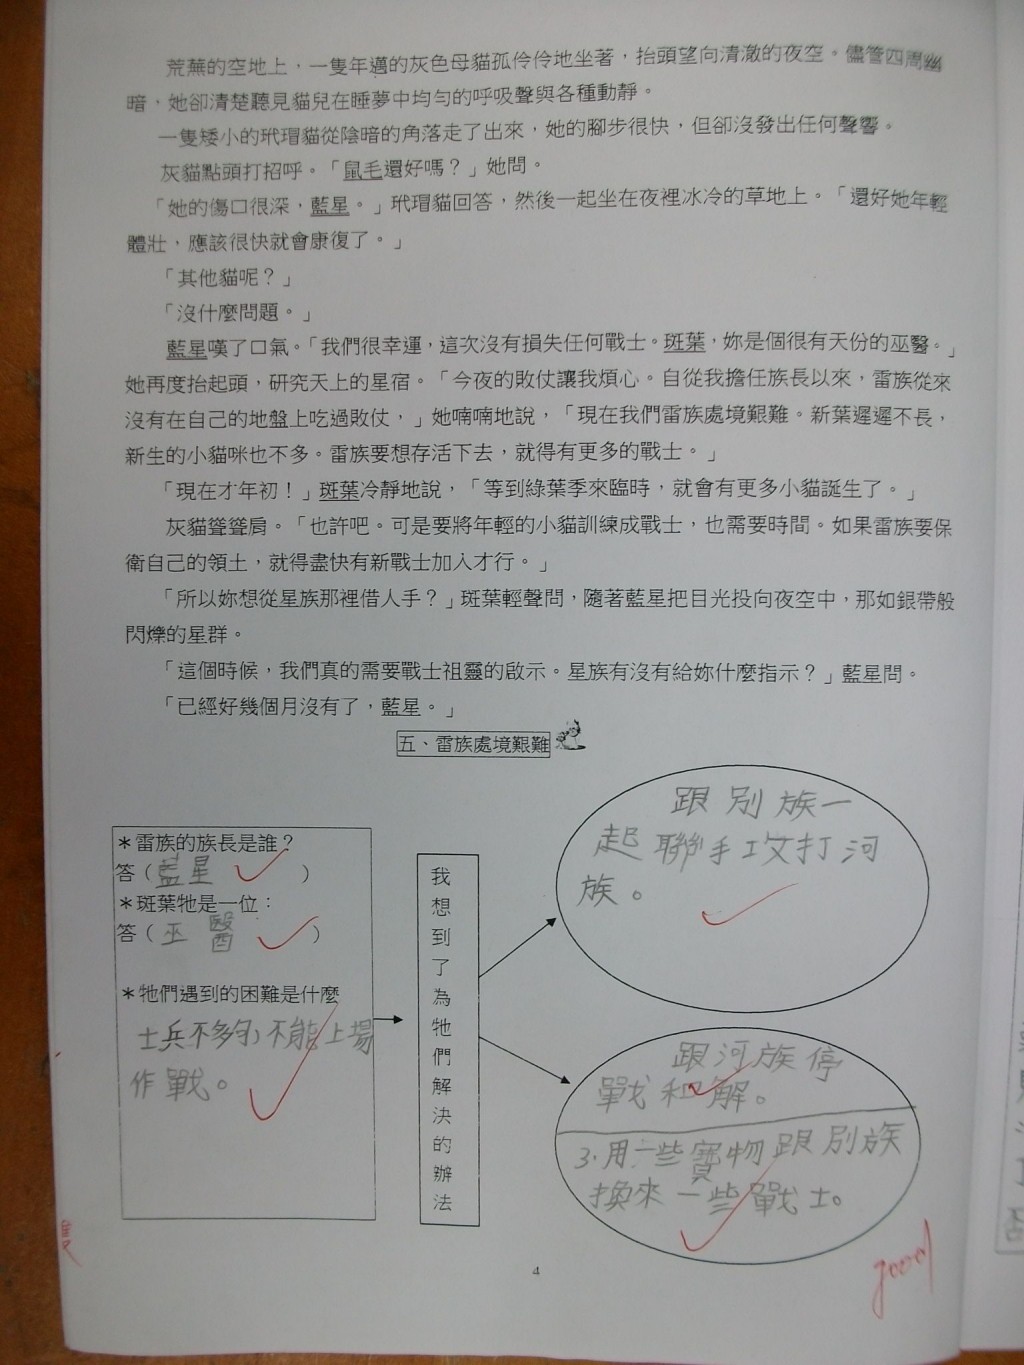 荒蕪的空地上，一隻年邁的灰色母貓孤伶伶地坐著，抬頭望向清澈的夜空。儘管四周幽
暗，她卻清楚聽見貓兒在睡夢中均勻的呼吸聲與各種動靜。
一隻矮小的玳瑁貓從陰暗的角落走了出來，她的腳步很快，但卻沒發出任何聲響。
灰貓點頭打招呼。「鼠毛還好嗎？」她問。
「她的傷口很深，藍星。」玳瑁貓回答，然後一起坐在夜裡冰冷的草地上。「還好她年輕
體壯，應該很快就會康復了。」
「其他貓呢？」
「沒什麼問題。」
藍星嘆了口氣。「我們很幸運，這次沒有損失任何戰士。斑葉，妳是個很有天份的巫醫。」
她再度抬起頭，研究天上的星宿。「今夜的敗仗讓我煩心。自從我擔任族長以來，雷族從來
沒有在自己的地盤上吃過敗仗，」她喃喃地說，「現在我們雷族處境艱難。新葉遲遲不長，
新生的小貓咪也不多。雷族要想存活下去，就得有更多的戰士。」
「現在才年初！」斑葉冷靜地說，「等到綠葉季來臨時，就會有更多小貓誕生了。」
灰貓聳聳肩。「也許吧。可是要將年輕的小貓訓練成戰士，也需要時間。如果雷族要保
衛自己的領土，就得盡快有新戰士加入才行。」
「所以妳想從星族那裡借人手？」斑葉輕聲問，隨著藍星把目光投向夜空中，那如銀帶般
閃爍的星群。
「這個時候，我們真的需要戰士祖靈的啟示。星族有沒有給妳什麼指示？」藍星問。
「已經好幾個月沒有了，藍星。」
五、雷族處境艱難
＊雷族的族長是誰？
答（藍星）
＊斑葉牠是一位：
答（巫醫）
＊牠們遇到的困難是什麼
士兵不多夠不能上場
作戰。
我想到了為牠們解決的辦法
跟別族一
起聯手攻打河
族。
跟河族停
戰和解。
3.用一些寶物跟別族
換來一些戰士。
good
4